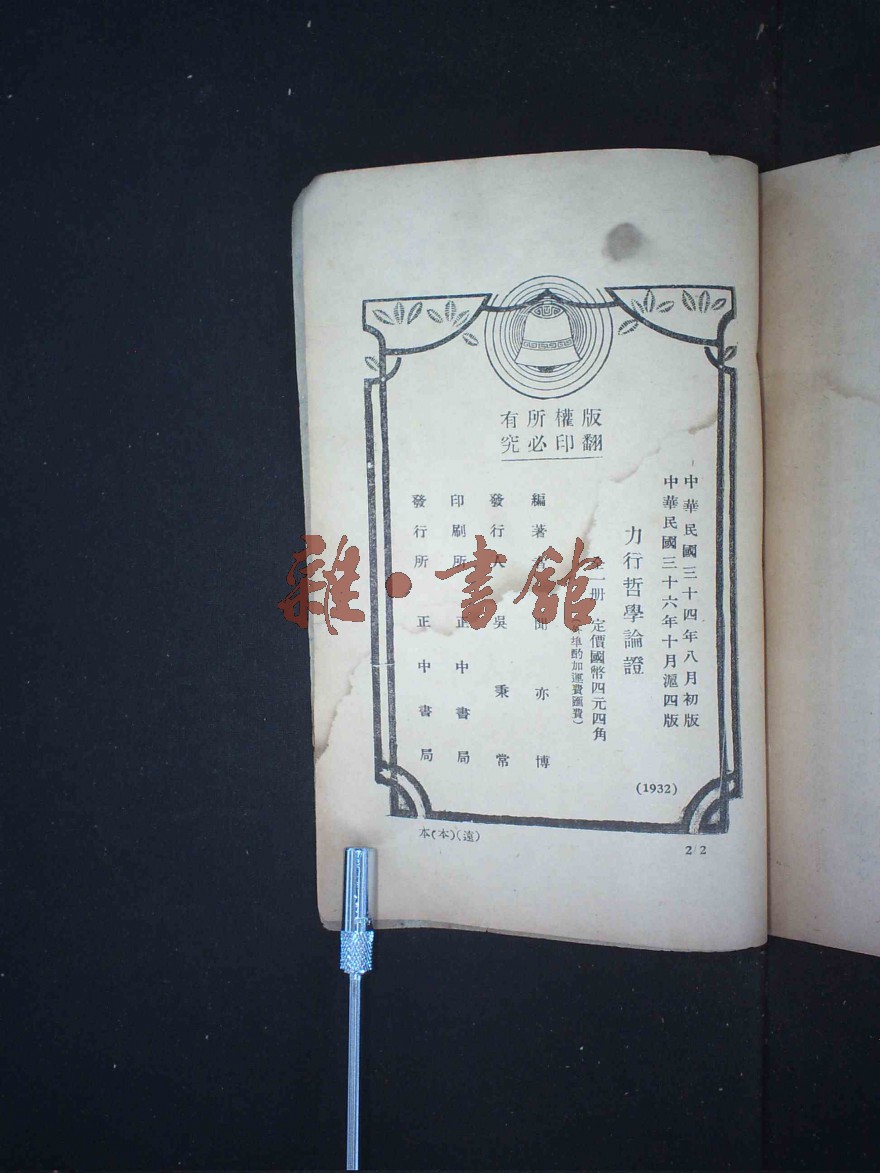 版權所有
翻印必究
中華民國三十四年八月初版
中華民國三十六年十月滬四版
力行哲學論證
一册 定價國幣四元四角
埠酌加運費匯費）
編著 亦博
發行人 吳秉常
印刷所 正中書局
發行所 正中書局
(1932)
本(本)(遠)
2/2
雜·書館